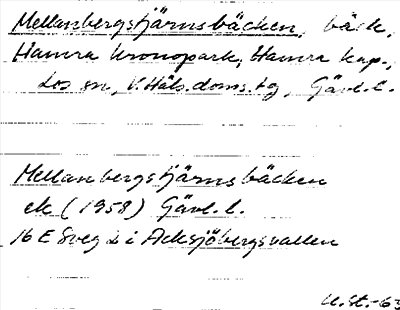 Mellanbergstjärnsbäcken, bäck,
Hamra kronopark, Hamra kap.,
Los sn, V. Häls. doms. tg, Gävl. l.
Mellanbergstjärnsbäcken
ek (1958) Gävl. l.
16 E Sveg i Acksjöbergsvallen
U.St.-63